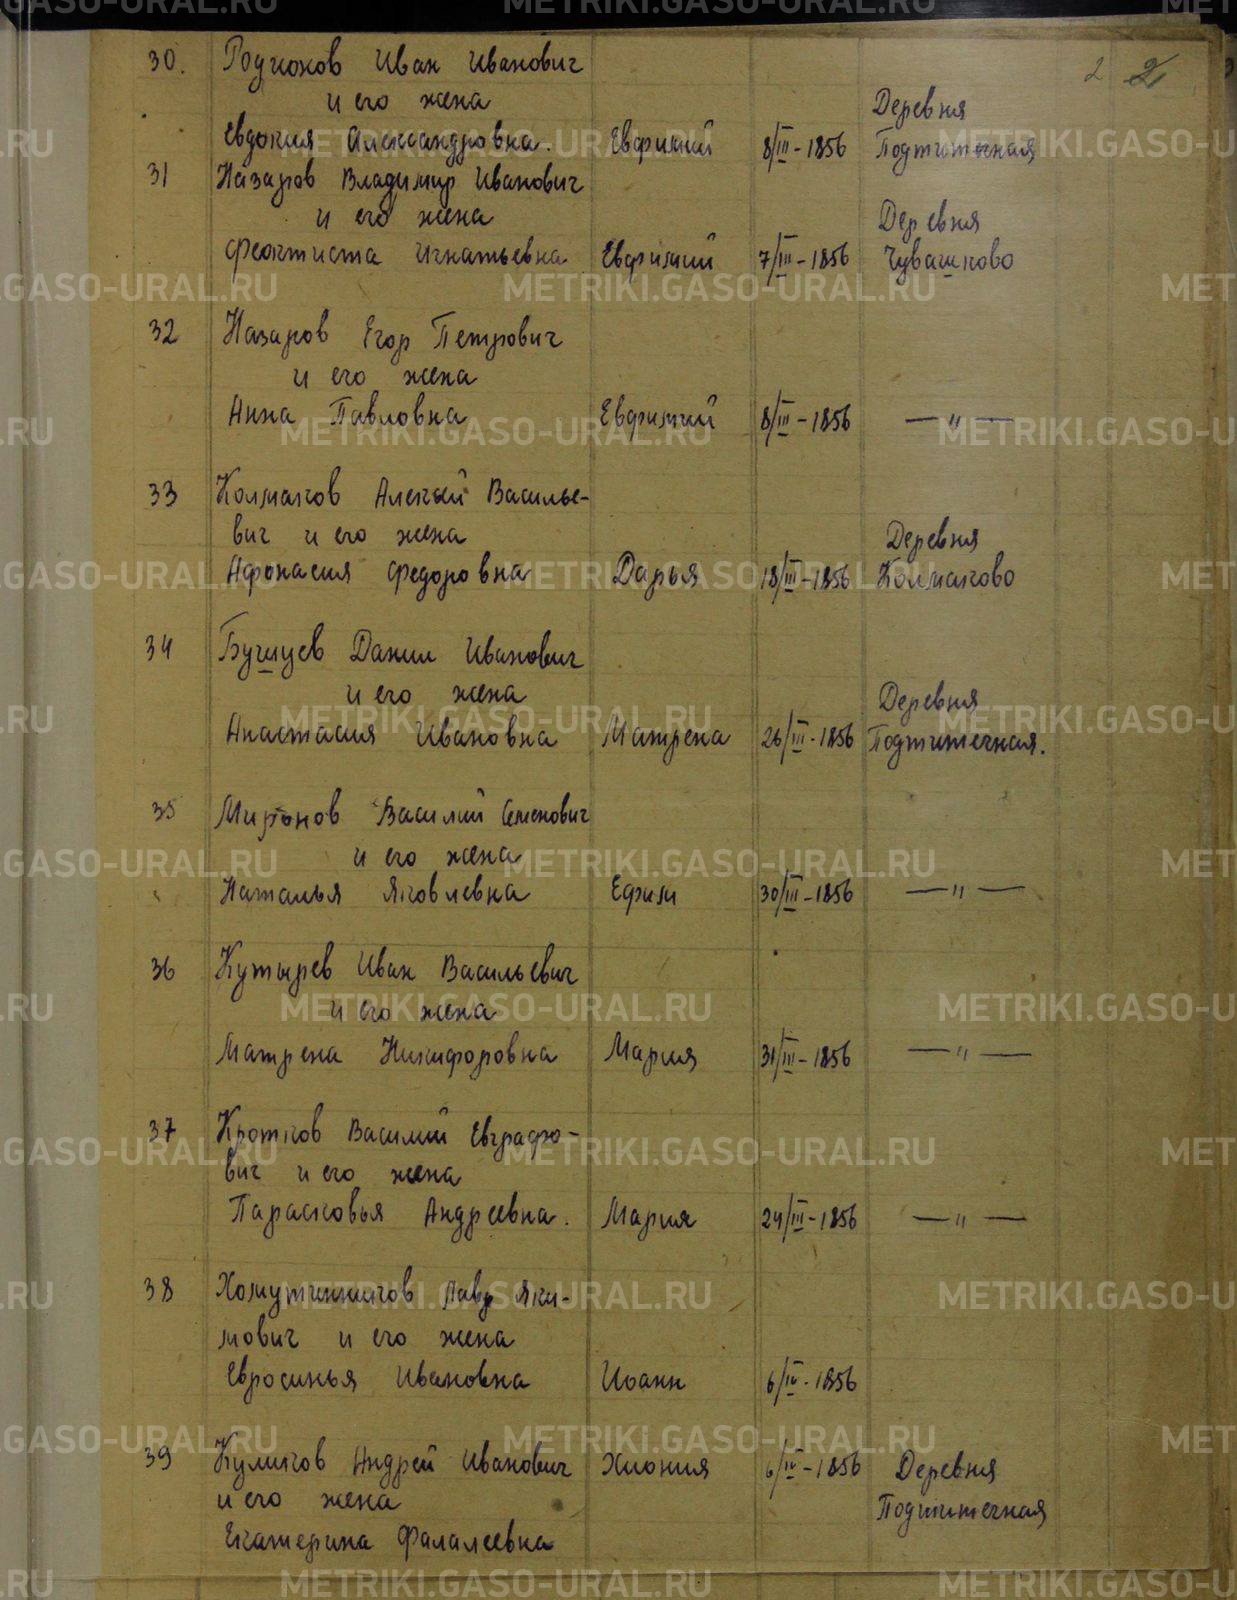 2 2
30. Родионов Иван Иванович
и его жена
Евдокия Александровна. Евфимий 8/III - 1856 Деревня Подтитечная
31 Назаров Владимир Иванович
и его жена
Феоктиста Игнатьевна Евфимий 7/III - 1856 Деревня Чувашково
32 Назаров Егор Петрович
и его жена
Анна Павловна Евфимий 8/III - 1856 — " —
33 Колмаков Алексей Василье-
вич и его жена
Афонасия Федоровна Дарья 18/III - 1856 Деревня Колмаково
34 Бушуев Данил Иванович
и его жена
Анастасия Ивановна Матрена 26/III - 1856 Деревня Подтитечная.
35 Миронов Василий Семенович
и его жена
Наталья Яковлевна Ефим 30/III - 1856 — " —
36 Кутырев Иван Васильевич
и его жена
Матрена Никифоровна Мария 31/III - 1856 — " —
37 Кротков Василий Евграфо-
вич и его жена
Парасковья Андреевна. Мария 24/III - 1856 — " —
38 Хомутинников Яки-
мович и его жена
Евросинья Ивановна Иоанн 6/IV - 1856
39 Куликов Андрей Иванович Хиония 6/IV - 1856 Деревня
и его жена Подтитечная
Екатерина Фалалеевна
METRIKI.GASO-URAL.RU